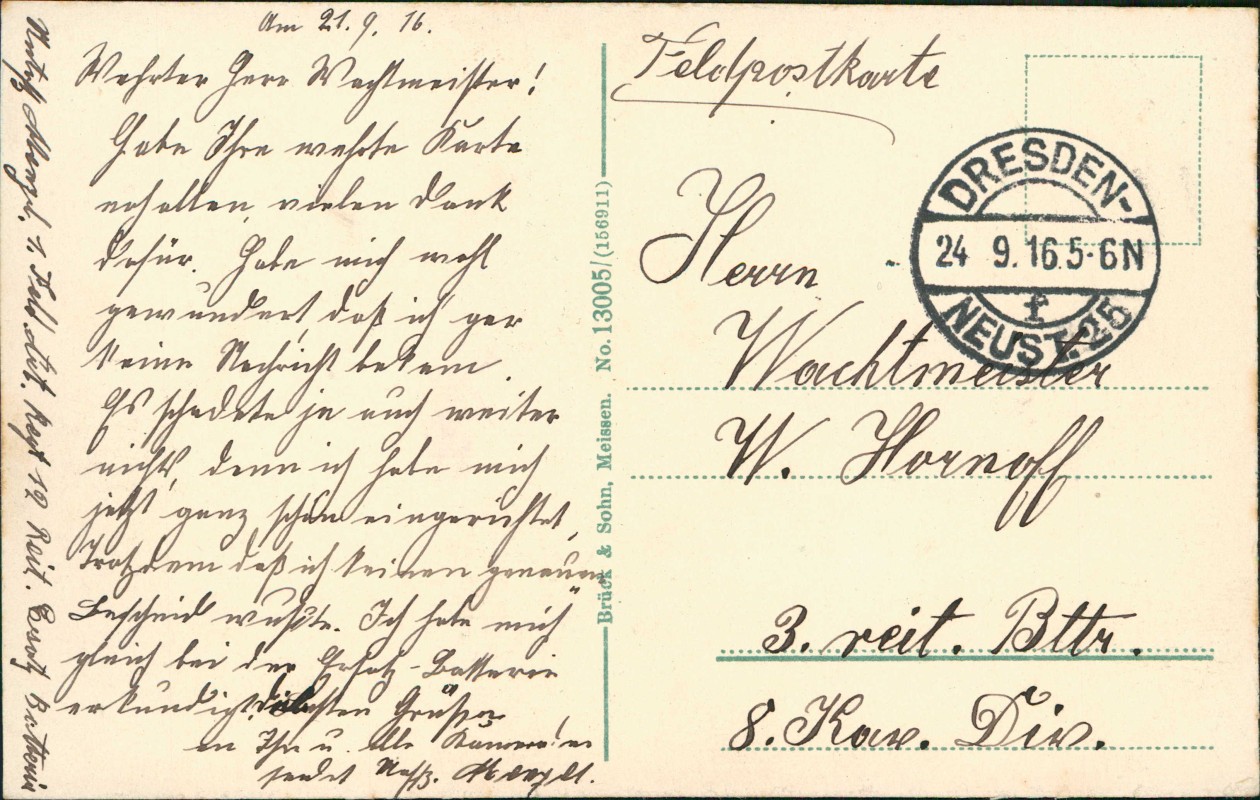 Am 21.9.16.
Wehrter Herr Wachtmeister!
Habe Ihre wehrte Karte
erhalten, vielen Dank
dafür. Habe mich wohl
gewundert, daß ich gar
keine Nachricht bekam.
Es schadete ja auch weiter
nichts, denn ich habe mich
jetzt ganz schön eingerichtet,
Trotzdem daß ich keinen genauen
Bescheid wußte. Ich habe mich
gleich bei der Ersatz-Batterie
erkundigt. Grüße
an Ihn u. alle Kameraden
sendet
1. Feld. Art. Regt 12 Reit. Ersatz Batterie
Brück & Sohn, Meissen. No. 13005/(156911)
Feldpostkarte
DRESDEN-
24 9.16 5-6N
NEUST. 25
Herrn
Wachtmeister
W. Hornoff
3. reit. Bttr.
8. Kav. Div.